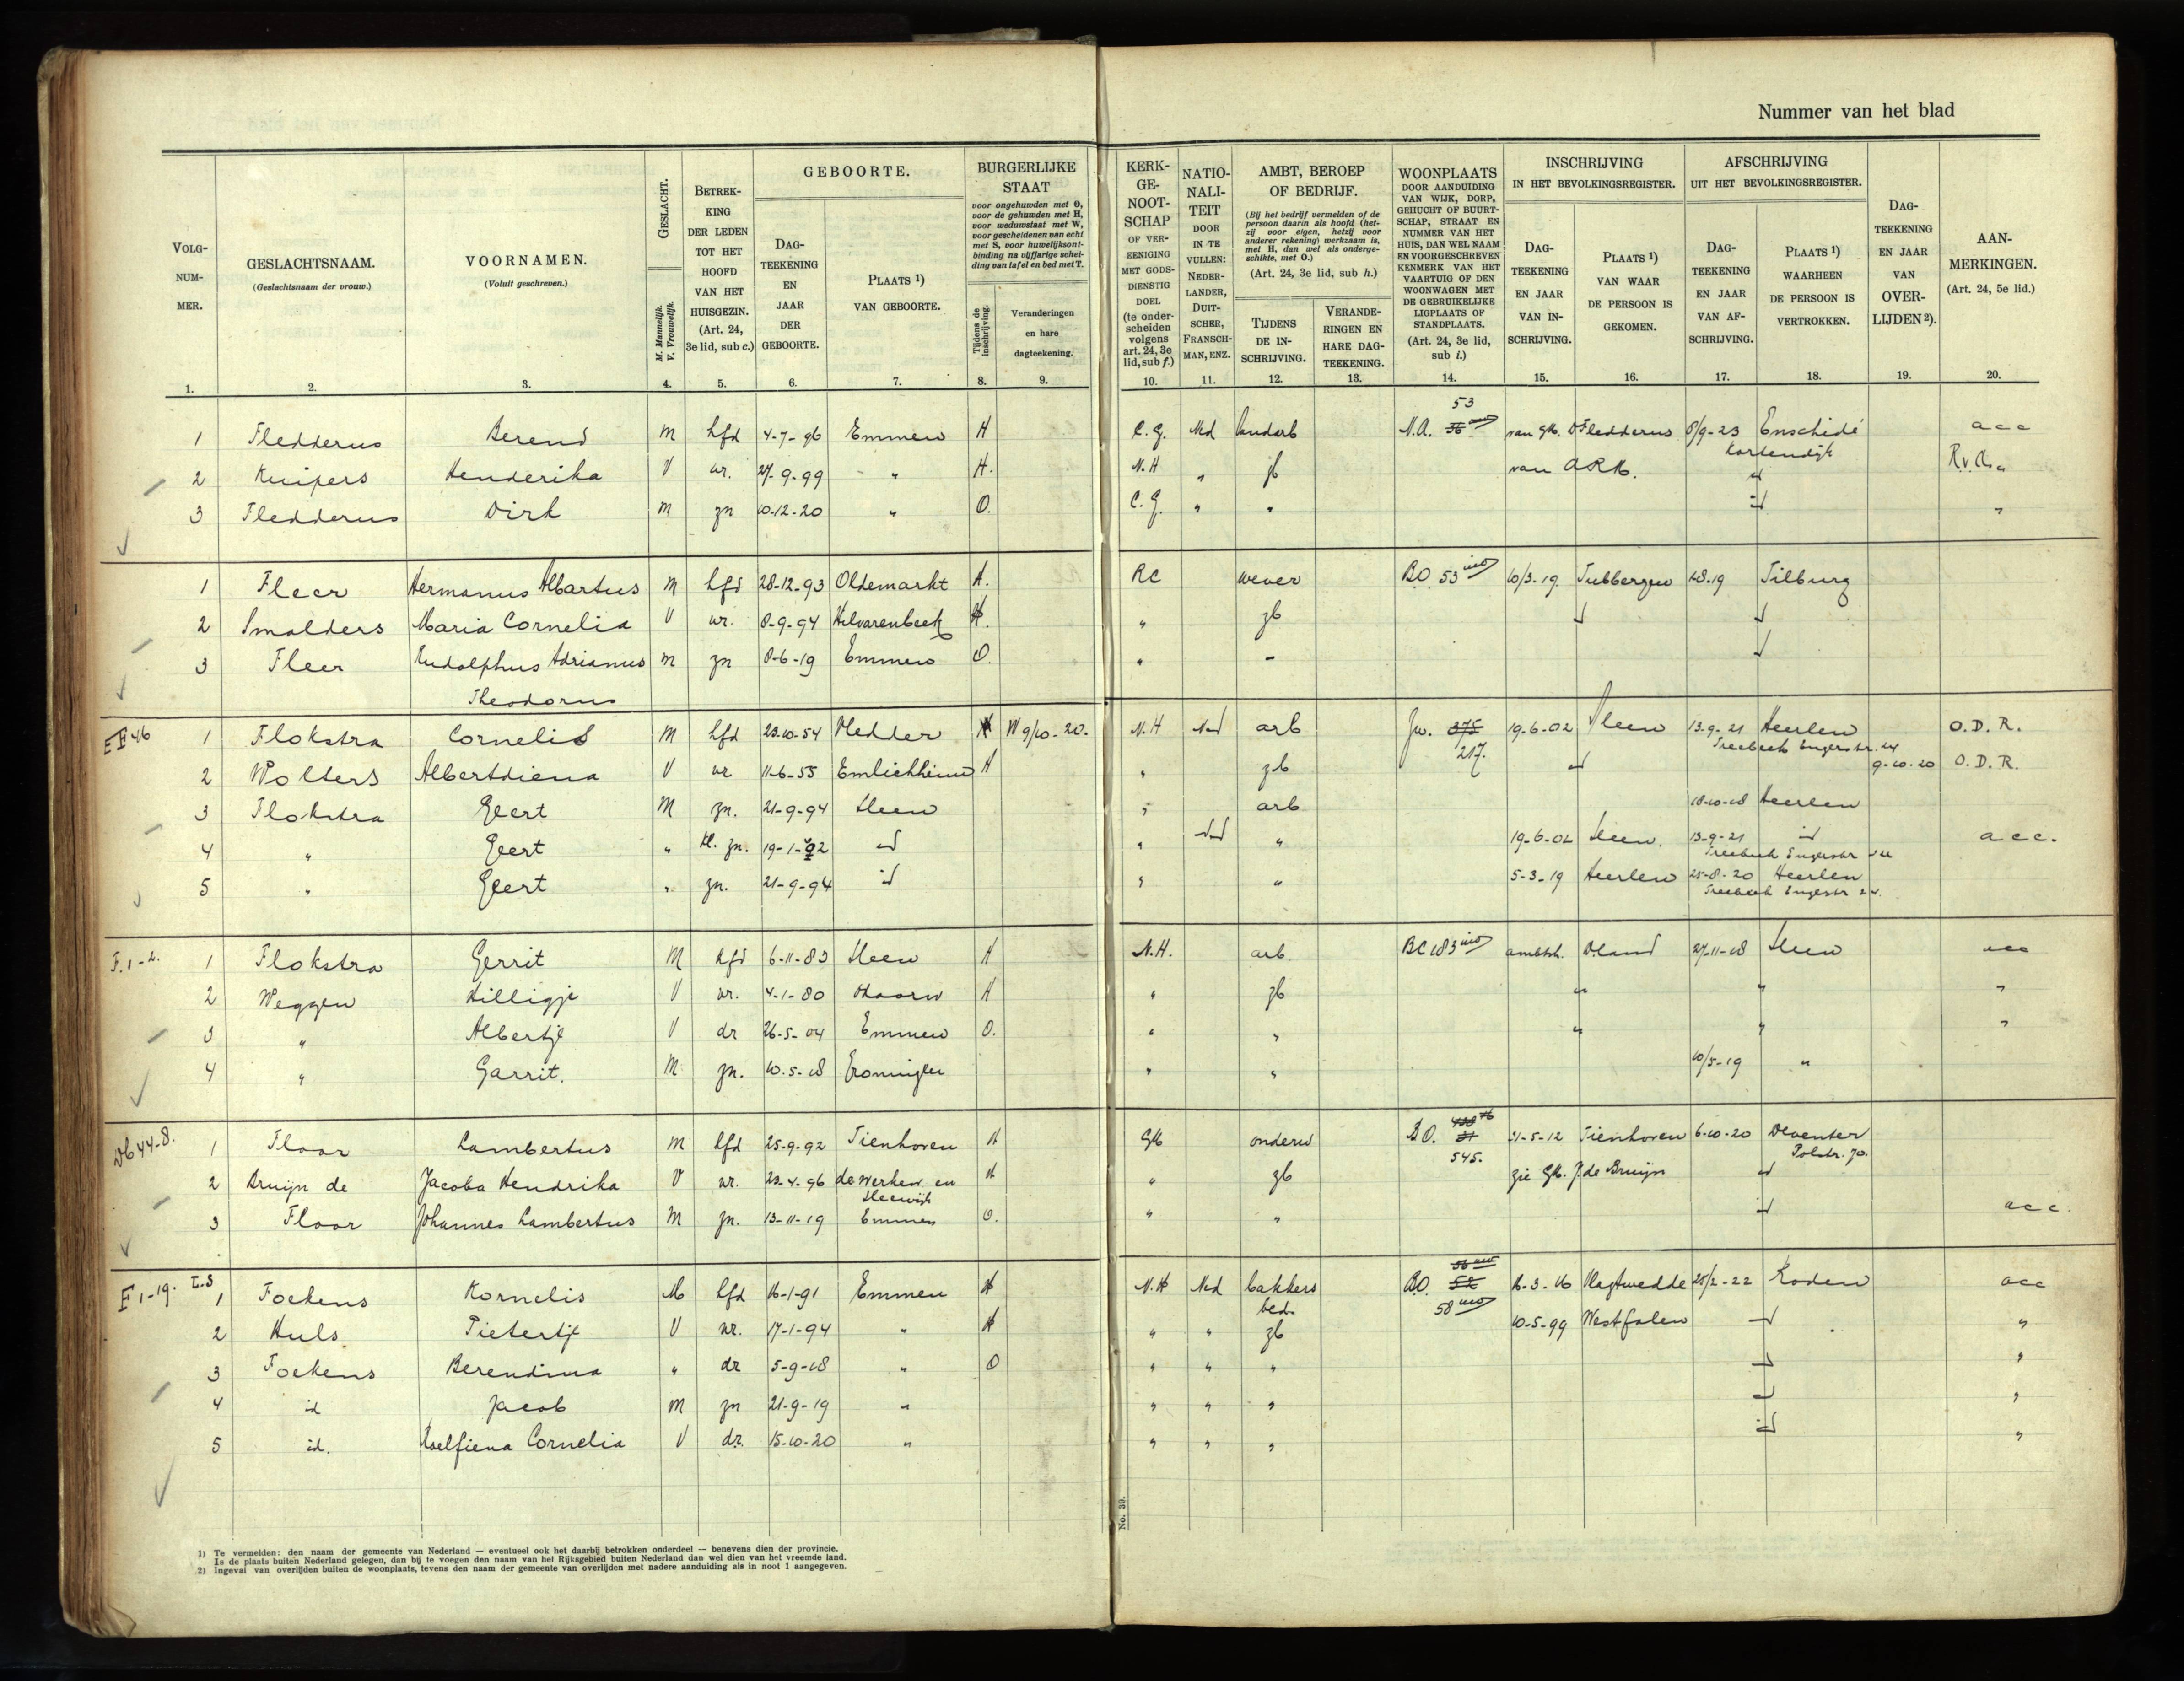 Nummer van het blad
VOLG-NUM-MER. GESLACHTSNAAM. (Geslachtsnaam der vrouw.) VOORNAMEN. (Voluit geschreven.) GESLACHT. M. Mannelijk. V. Vrouwelijk. BETREK-KING DER LEDEN TOT HET HOOFD VAN HET HUISGEZIN. (Art. 24, 3e lid, sub c.) GEBOORTE. DAG-TEEKENING EN JAAR DER GEBOORTE. PLAATS 1) VAN GEBOORTE. BURGERLIJKE STAAT voor ongehuwden met O, voor de gehuwden met H, voor weduwstaat met W, voor gescheidenen van echt met S, voor huwelijksont-binding na vijfjarige schei-ding van tafel en bed met T. Tijdens de inschrijving. Veranderingen en hare dagteekening.
KERK-GE-NOOT-SCHAP OF VER-EENIGING MET GODS-DIENSTIG DOEL (te onder-scheiden volgens art. 24, 3e lid, sub f.) NATIO-NALI-TEIT DOOR IN TE VULLEN: NEDER-LANDER, DUIT-SCHER, FRANSCH-MAN, ENZ. AMBT, BEROEP OF BEDRIJF. (Bij het bedrijf vermelden of de persoon daarin als hoofd (het-zij voor eigen, hetzij voor anderer rekening) werkzaam is, met H, dan wel als onderge-schikte, met O.) (Art. 24, 3e lid, sub h.) TIJDENS DE IN-SCHRIJVING. VERANDE-RINGEN EN HARE DAG-TEEKENING. WOONPLAATS DOOR AANDUIDING VAN WIJK, DORP, GEHUCHT OF BUURT-SCHAP, STRAAT EN NUMMER VAN HET HUIS, DAN WEL NAAM EN VOORGESCHREVEN KENMERK VAN HET VAARTUIG OF DEN WOONWAGEN MET DE GEBRUIKELIJKE LIGPLAATS OF STANDPLAATS. (Art. 24, 3e lid, sub i.) INSCHRIJVING IN HET BEVOLKINGSREGISTER. DAG-TEEKENING EN JAAR VAN IN-SCHRIJVING. PLAATS 1) VAN WAAR DE PERSOON IS GEKOMEN. AFSCHRIJVING UIT HET BEVOLKINGSREGISTER. DAG-TEEKENING EN JAAR VAN AF-SCHRIJVING. PLAATS 1) WAARHEEN DE PERSOON IS VERTROKKEN. DAG-TEEKENING EN JAAR VAN OVER-LIJDEN 2). AAN-MERKINGEN. (Art. 24, 5e lid.)
1. 2. 3. 4. 5. 6. 7. 8. 9. 10. 11. 12. 13. 14. 15. 16. 17. 18. 19. 20.
53
1 Fledderus Berend M hfd 4-7-96 Emmen H C.G. Ned landarb N.A. van GK. D Fledderus 8/9-23 Enschidé acc
Kortendijk
2 Kuipers Henderika V vr. 27-9-99 " H. N.H " zb van ARK. id
3 Fledderus Dirk M zn 10-12-20 " O. C.G. " " id "
1 Fleer Hermanus Albartus M hfd 28-12-93 Oldemarkt H. RC wever BO. 53 10/3-19 Tubbergen 1-8-19 Tilburg
2 Smolders Maria Cornelia V vr. 8-9-94 Hilvarenbeek H. " zb id id
3 Fleer Rudolphus Adrianus M zn 8-6-19 Emmen O. " - id
Theodorus
46 1 Flokstra Cornelis M hfd 23-10-54 Vledder H W 9/10-20. N.H Ned arb 375 19-6-02 Sleen 13-9-21 Heerlen O.D.R.
217. Treebeek Engerstr. 24
2 Wolters Albertdiena V vr 11-6-55 Emlichheim H " zb id 9-10-20 O.D.R.
3 Flokstra Geert M zn. 21-9-94 Sleen " arb 18-10-18 Heerlen
4 " Geert " kl. zn. 19-1-02 id " Ned " 19-6-02 Sleen. 13-9-21 id acc.
Treebeek Engerstr
5 " Geert " zn. 21-9-94 id " " 5-3-19 Heerlen 25-8-20 Heerlen
Treebeek Engerstr 24.
F.1-2. 1 Flokstra Gerrit M hfd 6-11-83 Sleen H N.H. arb BC 183 ambtsh. D.land 27-11-18 Sleen acc
2 Weggen Hilligje V vr. 4-1-80 H " zb " " "
3 " Albertje V dr 26-5-04 Emmen O. " " " " "
4 " Garrit. M zn. 10-5-18 Groningen " " 10/5-19 "
Db 44-8. 1 Floor Lambertus M hfd 25-9-92 Tienhoven H GK onderw BO. 21-5-12 Tienhoven 6-10-20 Deventer
545. Polstr. 70.
2 Bruijn de Jacoba Hendrika V vr. 23-4-96 de Werken en H " zb zie GK. J. de Bruijn id
Sleewijk
3 Floor Johannes Lambertus M zn. 13-11-19 Emmen O. " " id acc.
F 1-19. L.S 1 Foekens Kornelis M hfd 16-1-91 Emmen H N.H Ned bakkers BO. 52 16-3-16 Vlagtwedde 25/2-22 Roden acc
bed. 58
2 Huls Pietertje V vr. 17-1-94 " H " " zb 10-5-99 Westfalen id "
3 Foekens Berendina " dr 5-9-18 " O " " " id "
4 id Jacob M zn 21-9-19 " " " " id "
5 id. Roelfiena Cornelia V dr. 15-10-20 " " " " id "
No. 39.
1) Te vermelden: den naam der gemeente van Nederland — eventueel ook het daarbij betrokken onderdeel — benevens dien der provincie.
Is de plaats buiten Nederland gelegen, dan bij te voegen den naam van het Rijksgebied buiten Nederland dan wel dien van het vreemde land.
2) Ingeval van overlijden buiten de woonplaats, tevens den naam der gemeente van overlijden met nadere aanduiding als in noot 1 aangegeven.